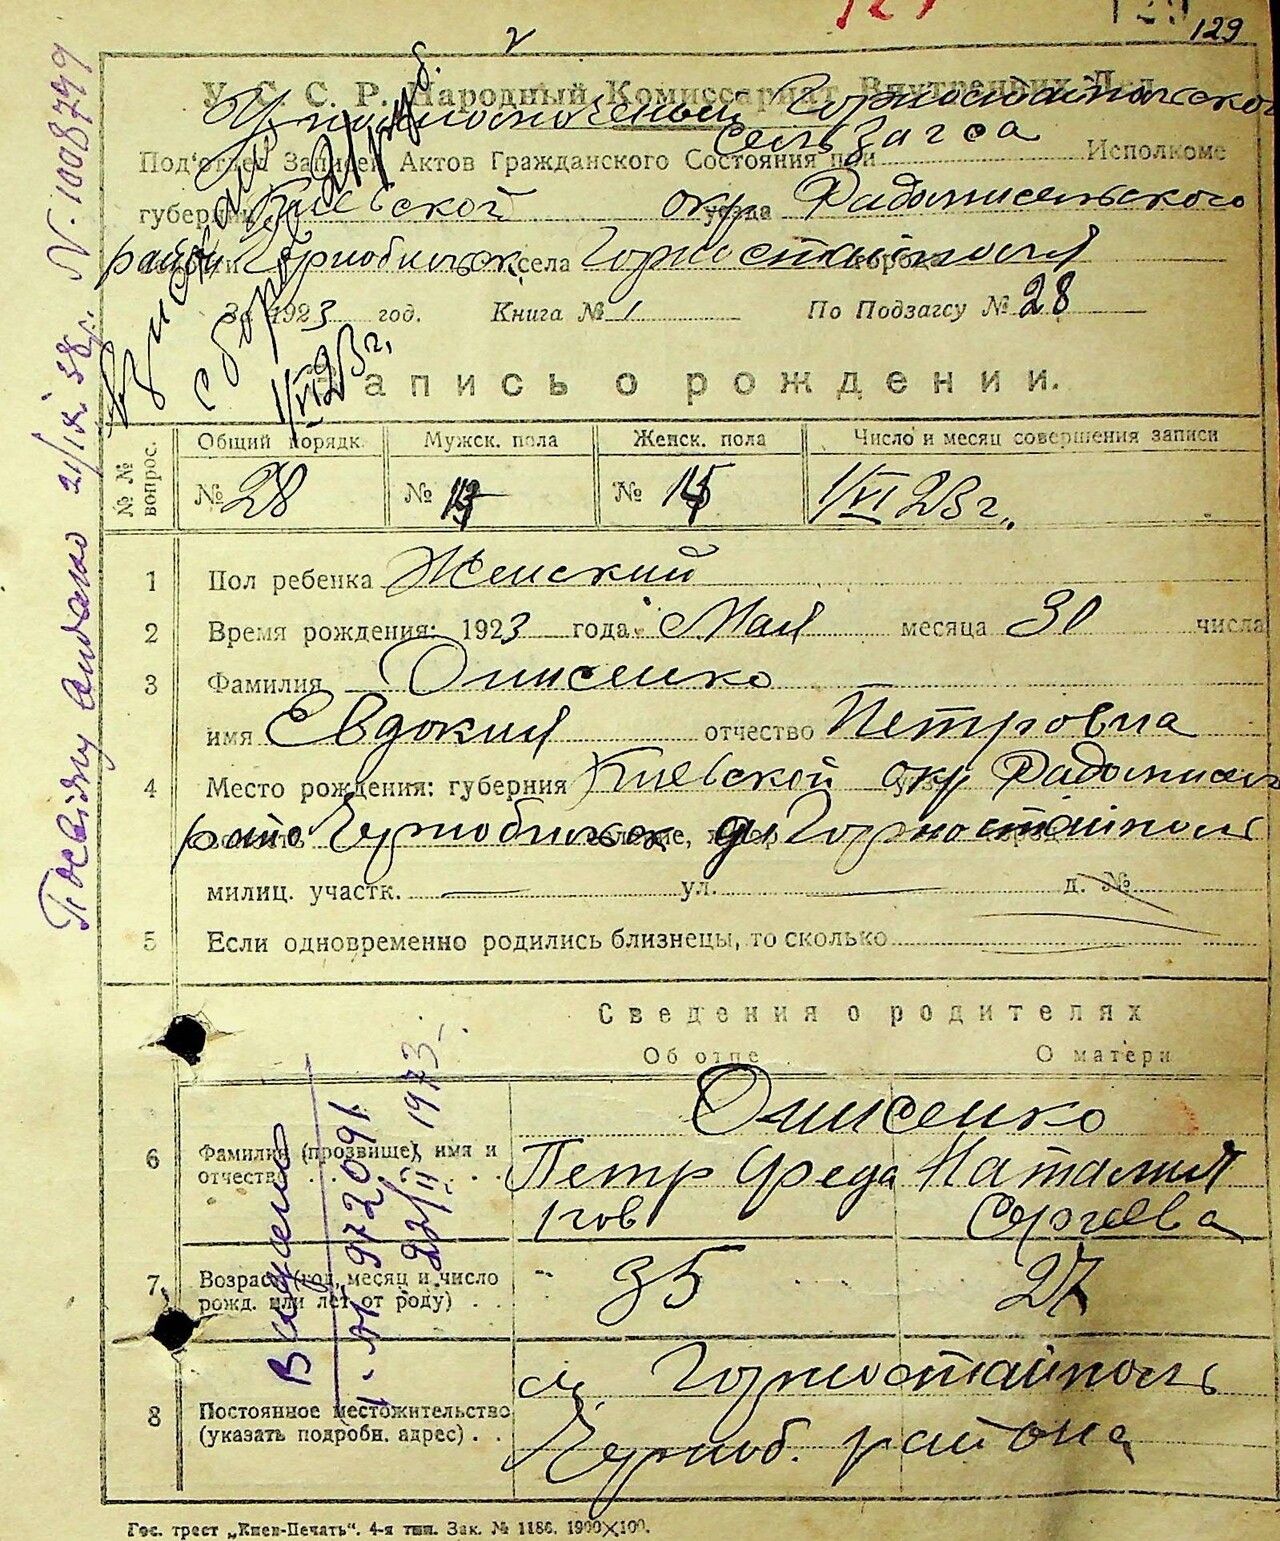 129
У. С. С. Р. Народный Комиссариат Внутренних Дел
Уполномоченый Горностайпольского
сельзагса
Под'отдел Записей Актов Гражданского Состояния при Исполкоме
губернии Киевской уезда окр Радомисельского
района Чернобыльск. села Горностайполя
За 1923 год. Книга № 1 По Подзагсу № 28
Запись о рождении.
№ № вопрос.
Общий порядк. Мужск. пола Женск. пола Число и месяц совершения записи
№ 28 № № 15 1/VI 23 г.
1 Пол ребенка Женский
2 Время рождения: 1923 года Мая месяца 30 числа
3 Фамилия Онисенко
имя Евдокия отчество Петровна
4 Место рождения: губерния Киевской окр Радомисель
Чернобыльск Горностайполь
милиц. участк. ул. д. №
5 Если одновременно родились близнецы, то сколько
Сведения о родителях
Об отце О матери
Онисенко
6 Фамилия (прозвище), имя и отчество Петр Федаков Наталия Сергеева
7 Возраст (год, месяц и число рожд. или лет от роду) 35 27
8 Постоянное местожительство (указать подробн. адрес) с. Горностайполь
Черноб. района
Гос. трест „Киев-Печать“. 4-я тип. Зак. № 1186. 1900×100.
1/VI 23 г.
Посвідку видано 21/IX 38 р. N. 1008799
Видано
972091
22/II 1973